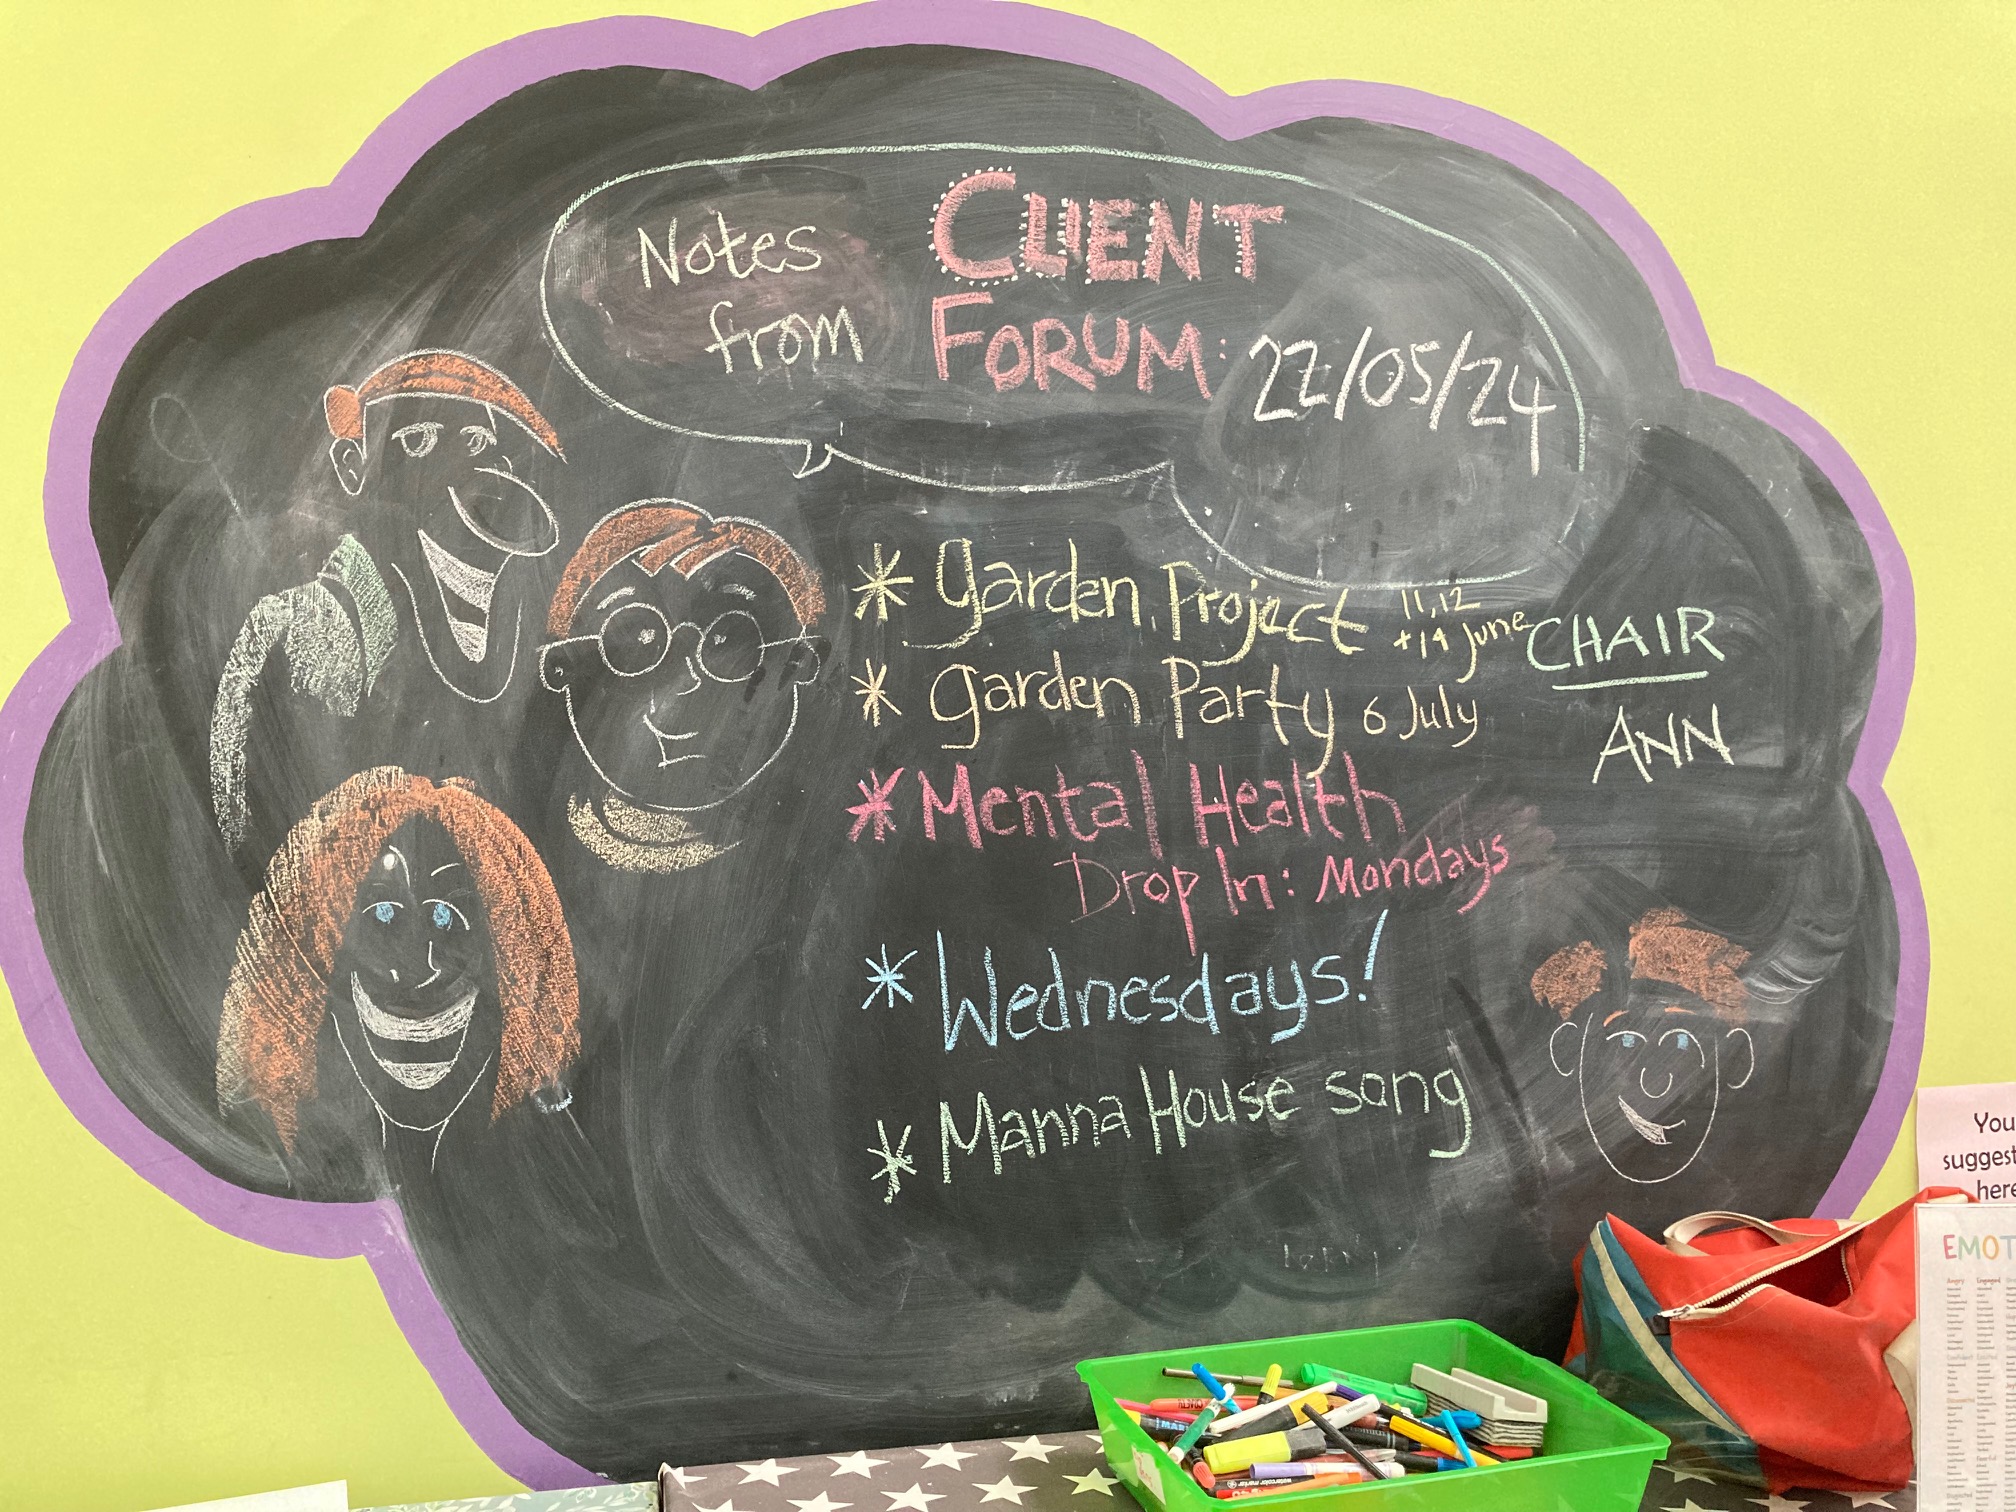 Notes from
CLIENT FORUM:
22/05/24
* Garden Project 11, 12 + 14 June
* Garden Party 6 July
* Mental Health
Drop In: Mondays
* Wednesdays!
* Manna House song
CHAIR
ANN
here